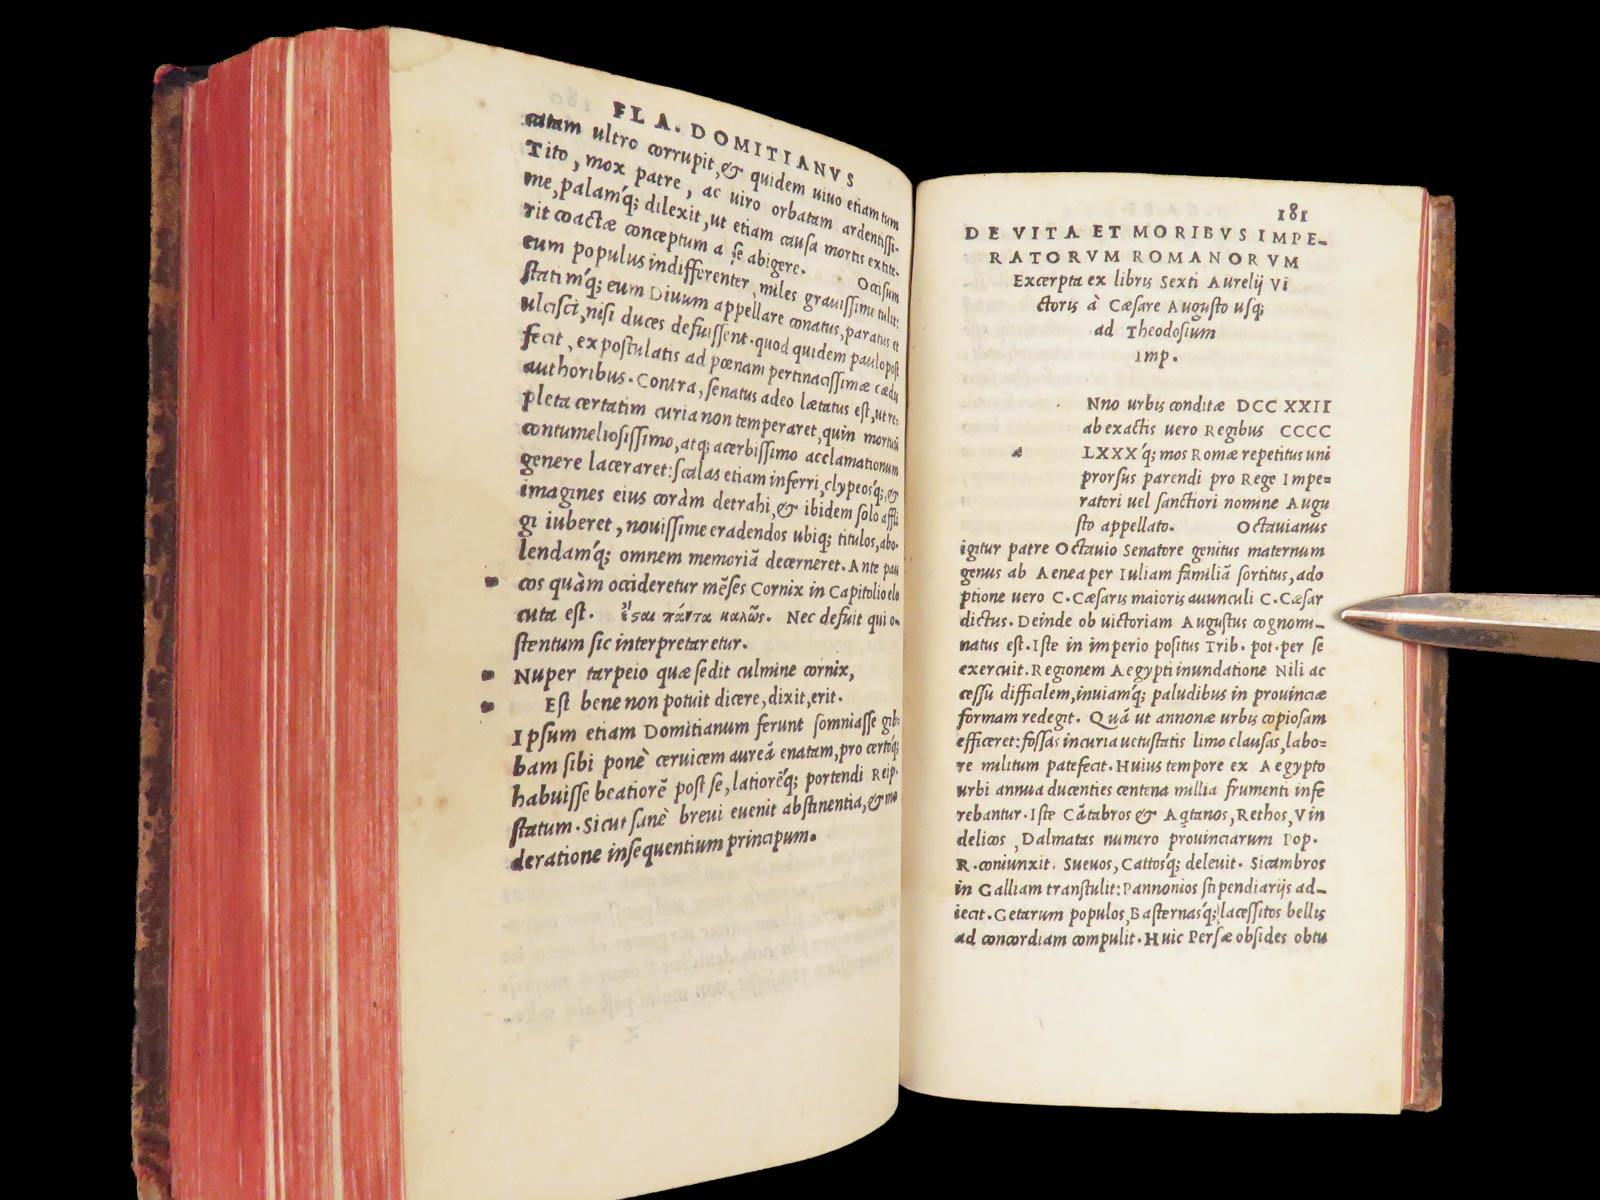 FLA. DOMITIANVS
catam ultro corrupit, & quidem uiuo etiam tum
Tito, mox patre, ac uiro orbatam ardentissi-
me, palamq́; dilexit, ut etiam causa mortis extite-
rit coactæ conceptum a se abigere. Occisum
eum populus indifferenter, miles grauissime tulit:
statimq́; eum Diuum appellare conatus, paratus et
ulcisci, nisi duces defuissent. quod quidem paulo post
fecit, expostulatis ad pœnam pertinacissimæ cædis
authoribus. Contra, senatus adeo lætatus est, ut re-
pleta certatim curia non temperaret, quin mortuū
contumeliosissimo, atq; acerbissimo acclamationum
genere laceraret: scalas etiam inferri, clypeosq́;, &
imagines eius coràm detrahi, & ibidem solo affli
gi iuberet, nouissime eradendos ubiq; titulos, abo-
lendamq́; omnem memoriā decerneret. Ante pau
cos quàm occideretur mēses Cornix in Capitolio elo
cuta est. ἔςαι πάντα καλῶς. Nec defuit qui o-
stentum sic interpretaretur.
Nuper tarpeio quæ sedit culmine cornix,
Est bene non potuit dicere, dixit, erit.
Ipsum etiam Domitianum ferunt somniasse gib-
bam sibi ponè ceruicem aureā enatam, pro certoq́;
habuisse beatiorē post se, latiorēq́; portendi Reip.
statum. Sicut sanè breui euenit abstinentia, & mo
deratione insequentium principum.
181
DE VITA ET MORIBVS IMPE-
RATORVM ROMANORVM
Excerpta ex libris Sexti Aurelij Vi
ctoris à Cæsare Augusto usq;
ad Theodosium
Imp.
Nno urbis conditæ DCC XXII
ab exactis uero Regibus CCCC
a LXXXq́; mos Romæ repetitus uni
prorsus parendi pro Rege Impe=
ratori uel sanctiori nomine Augu
sto appellato. Octauianus
igitur patre Octauio Senatore genitus maternum
genus ab Aenea per Iuliam familiā sortitus, ado
ptione uero C. Cæsaris maioris auunculi C. Cæsar
dictus. Deinde ob uictoriam Augustus cognomi-
natus est. Iste in imperio positus Trib. pot. per se
exercuit. Regionem Aegypti inundatione Nili ac
cessu difficilem, inuiamq́; paludibus in prouinciæ
formam redegit. Quā ut annonæ urbis copiosam
efficeret: fossas incuria uetustatis limo clausas, labo=
re militum patefecit. Huius tempore ex Aegypto
urbi annua ducenties centena millia frumenti infe
rebantur. Iste Cātabros & Aqtanos, Rethos, Vin
delicos, Dalmatas numero prouinciarum Pop.
R. coniunxit. Sueuos, Cattosq́; deleuit. Sicambros
in Galliam transtulit: Pannonios stipendiarijs ad-
iecit. Getarum populos, Basternasq́; lacessitos bellis
ad concordiam compulit. Huic Persæ obsides obtu